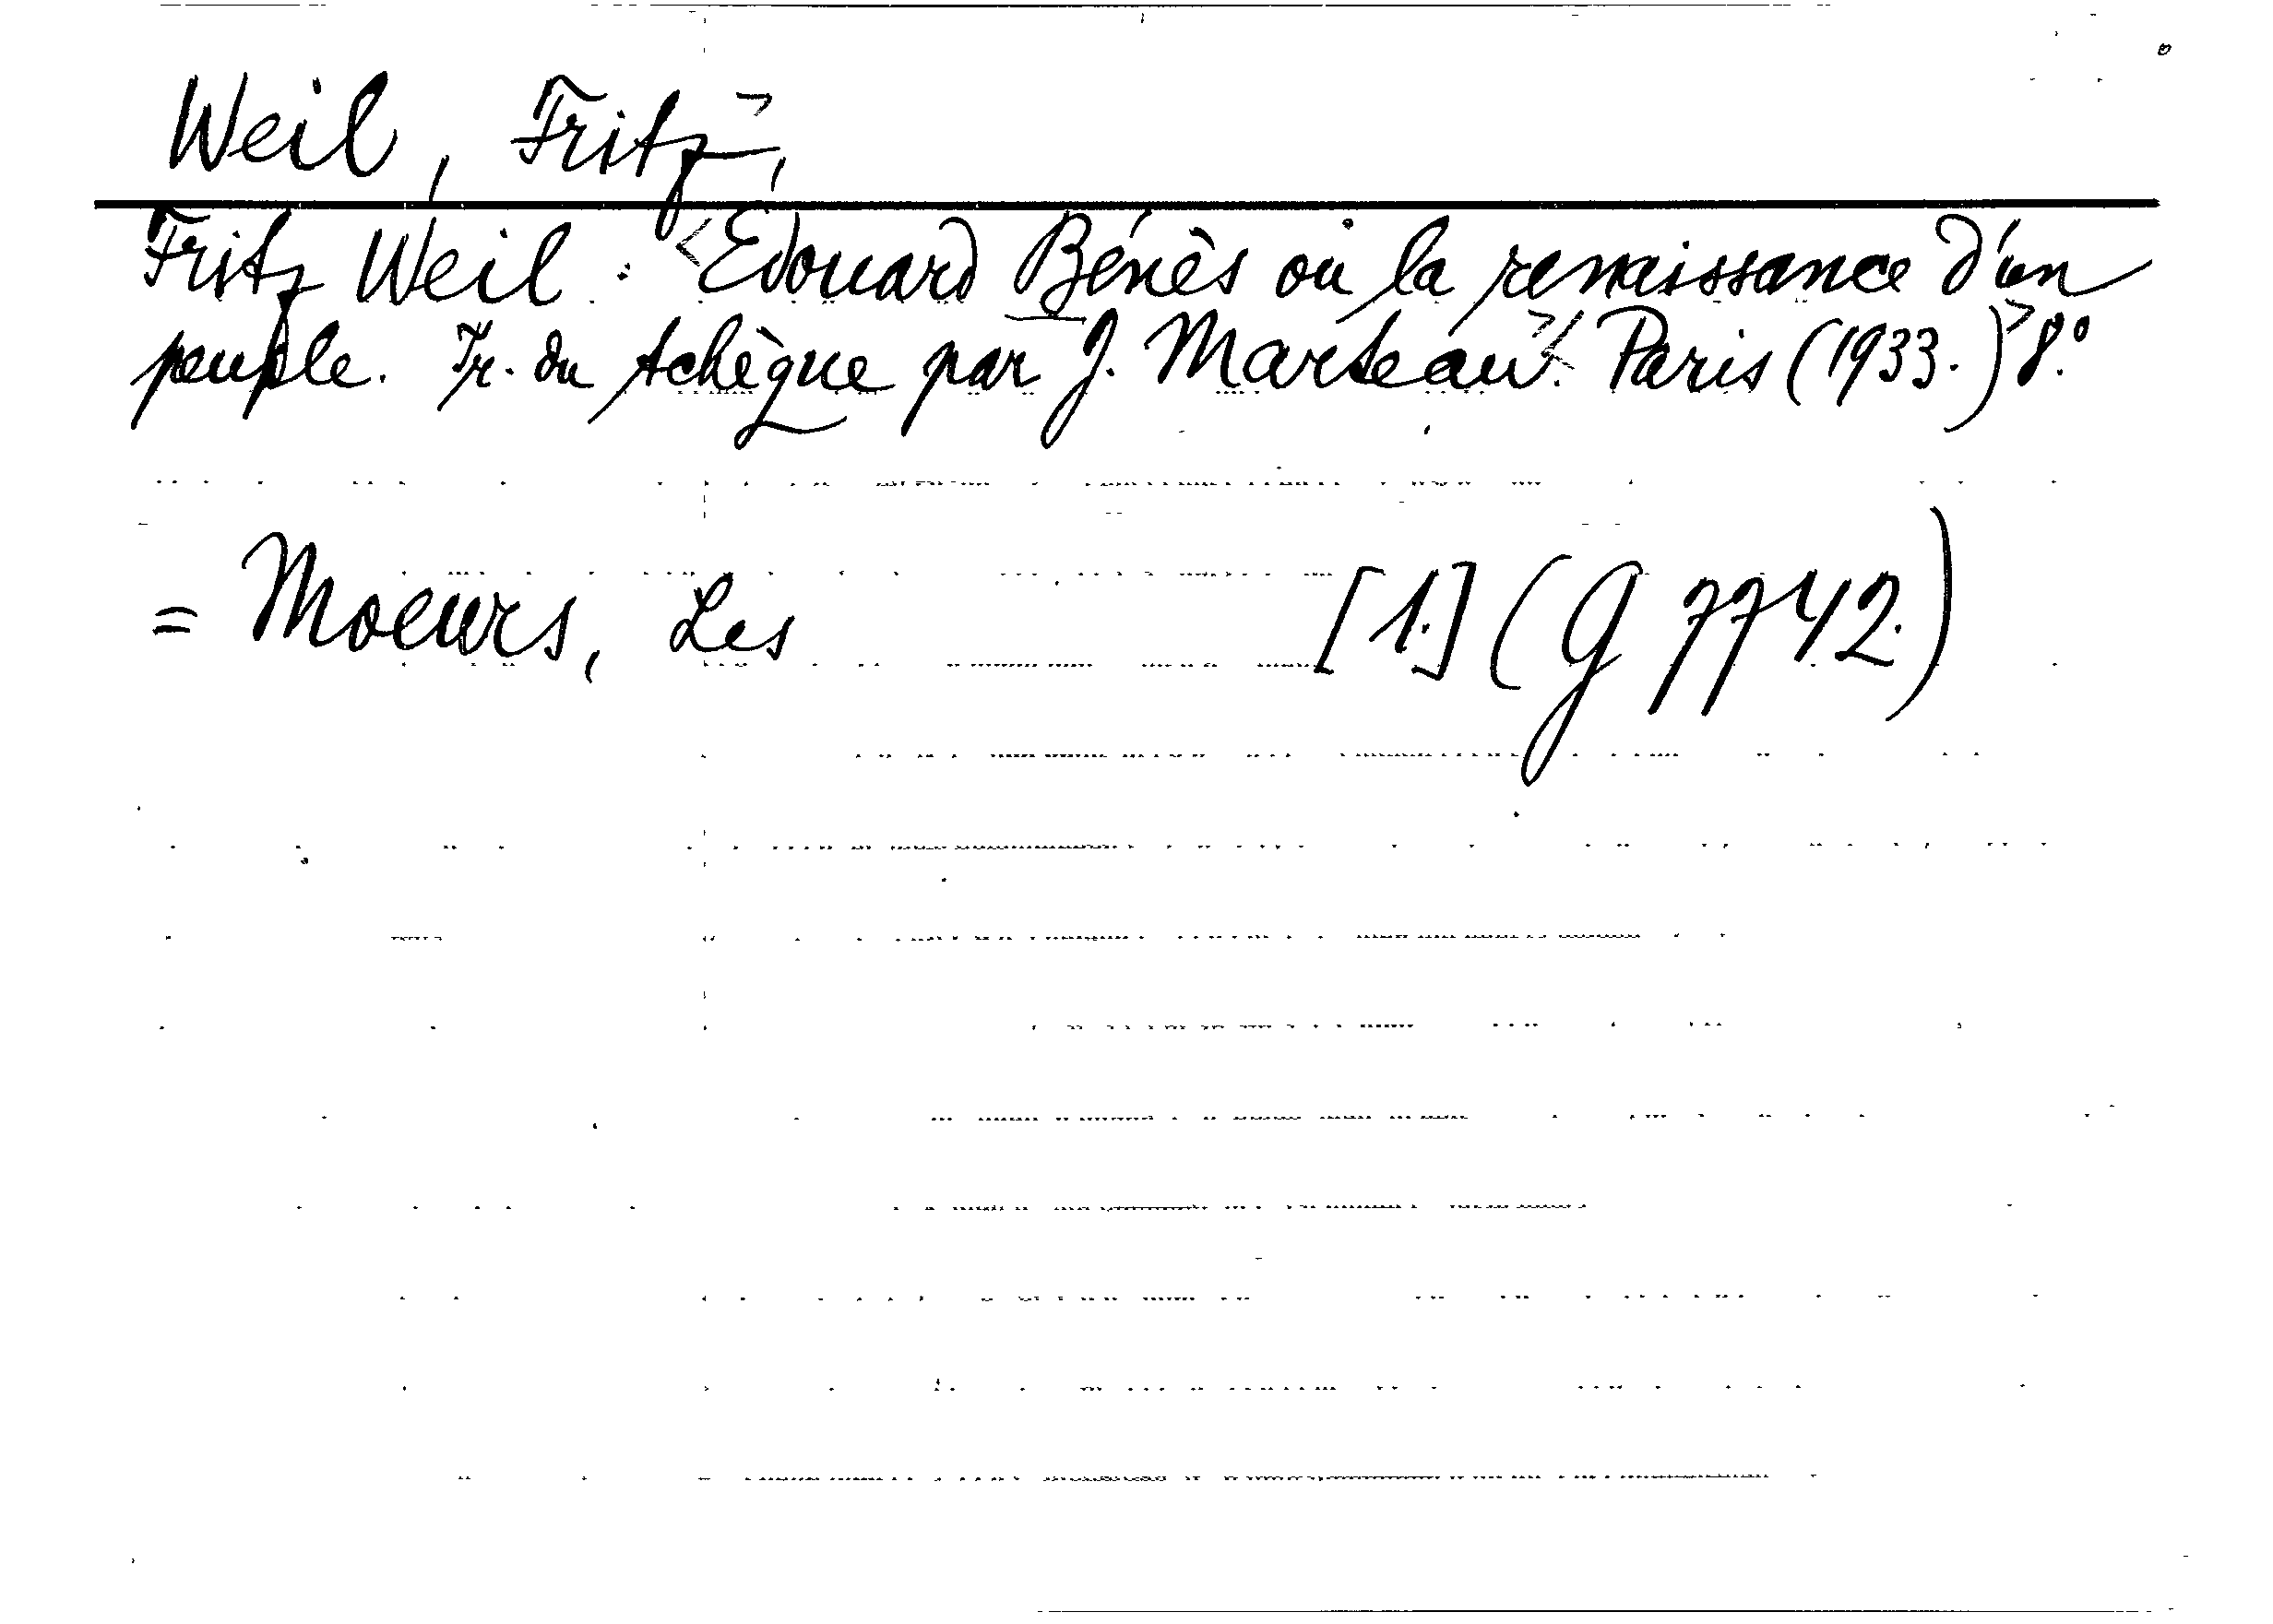 Weil, Fritz,
Fritz Weil: <Edouard Bénès ou la renaissance d'un
peuple. Tr. du tchèque par J. Marteau.>< Paris (1933.)> 8.°
= Moeurs, Les [1.] (G 7742.)